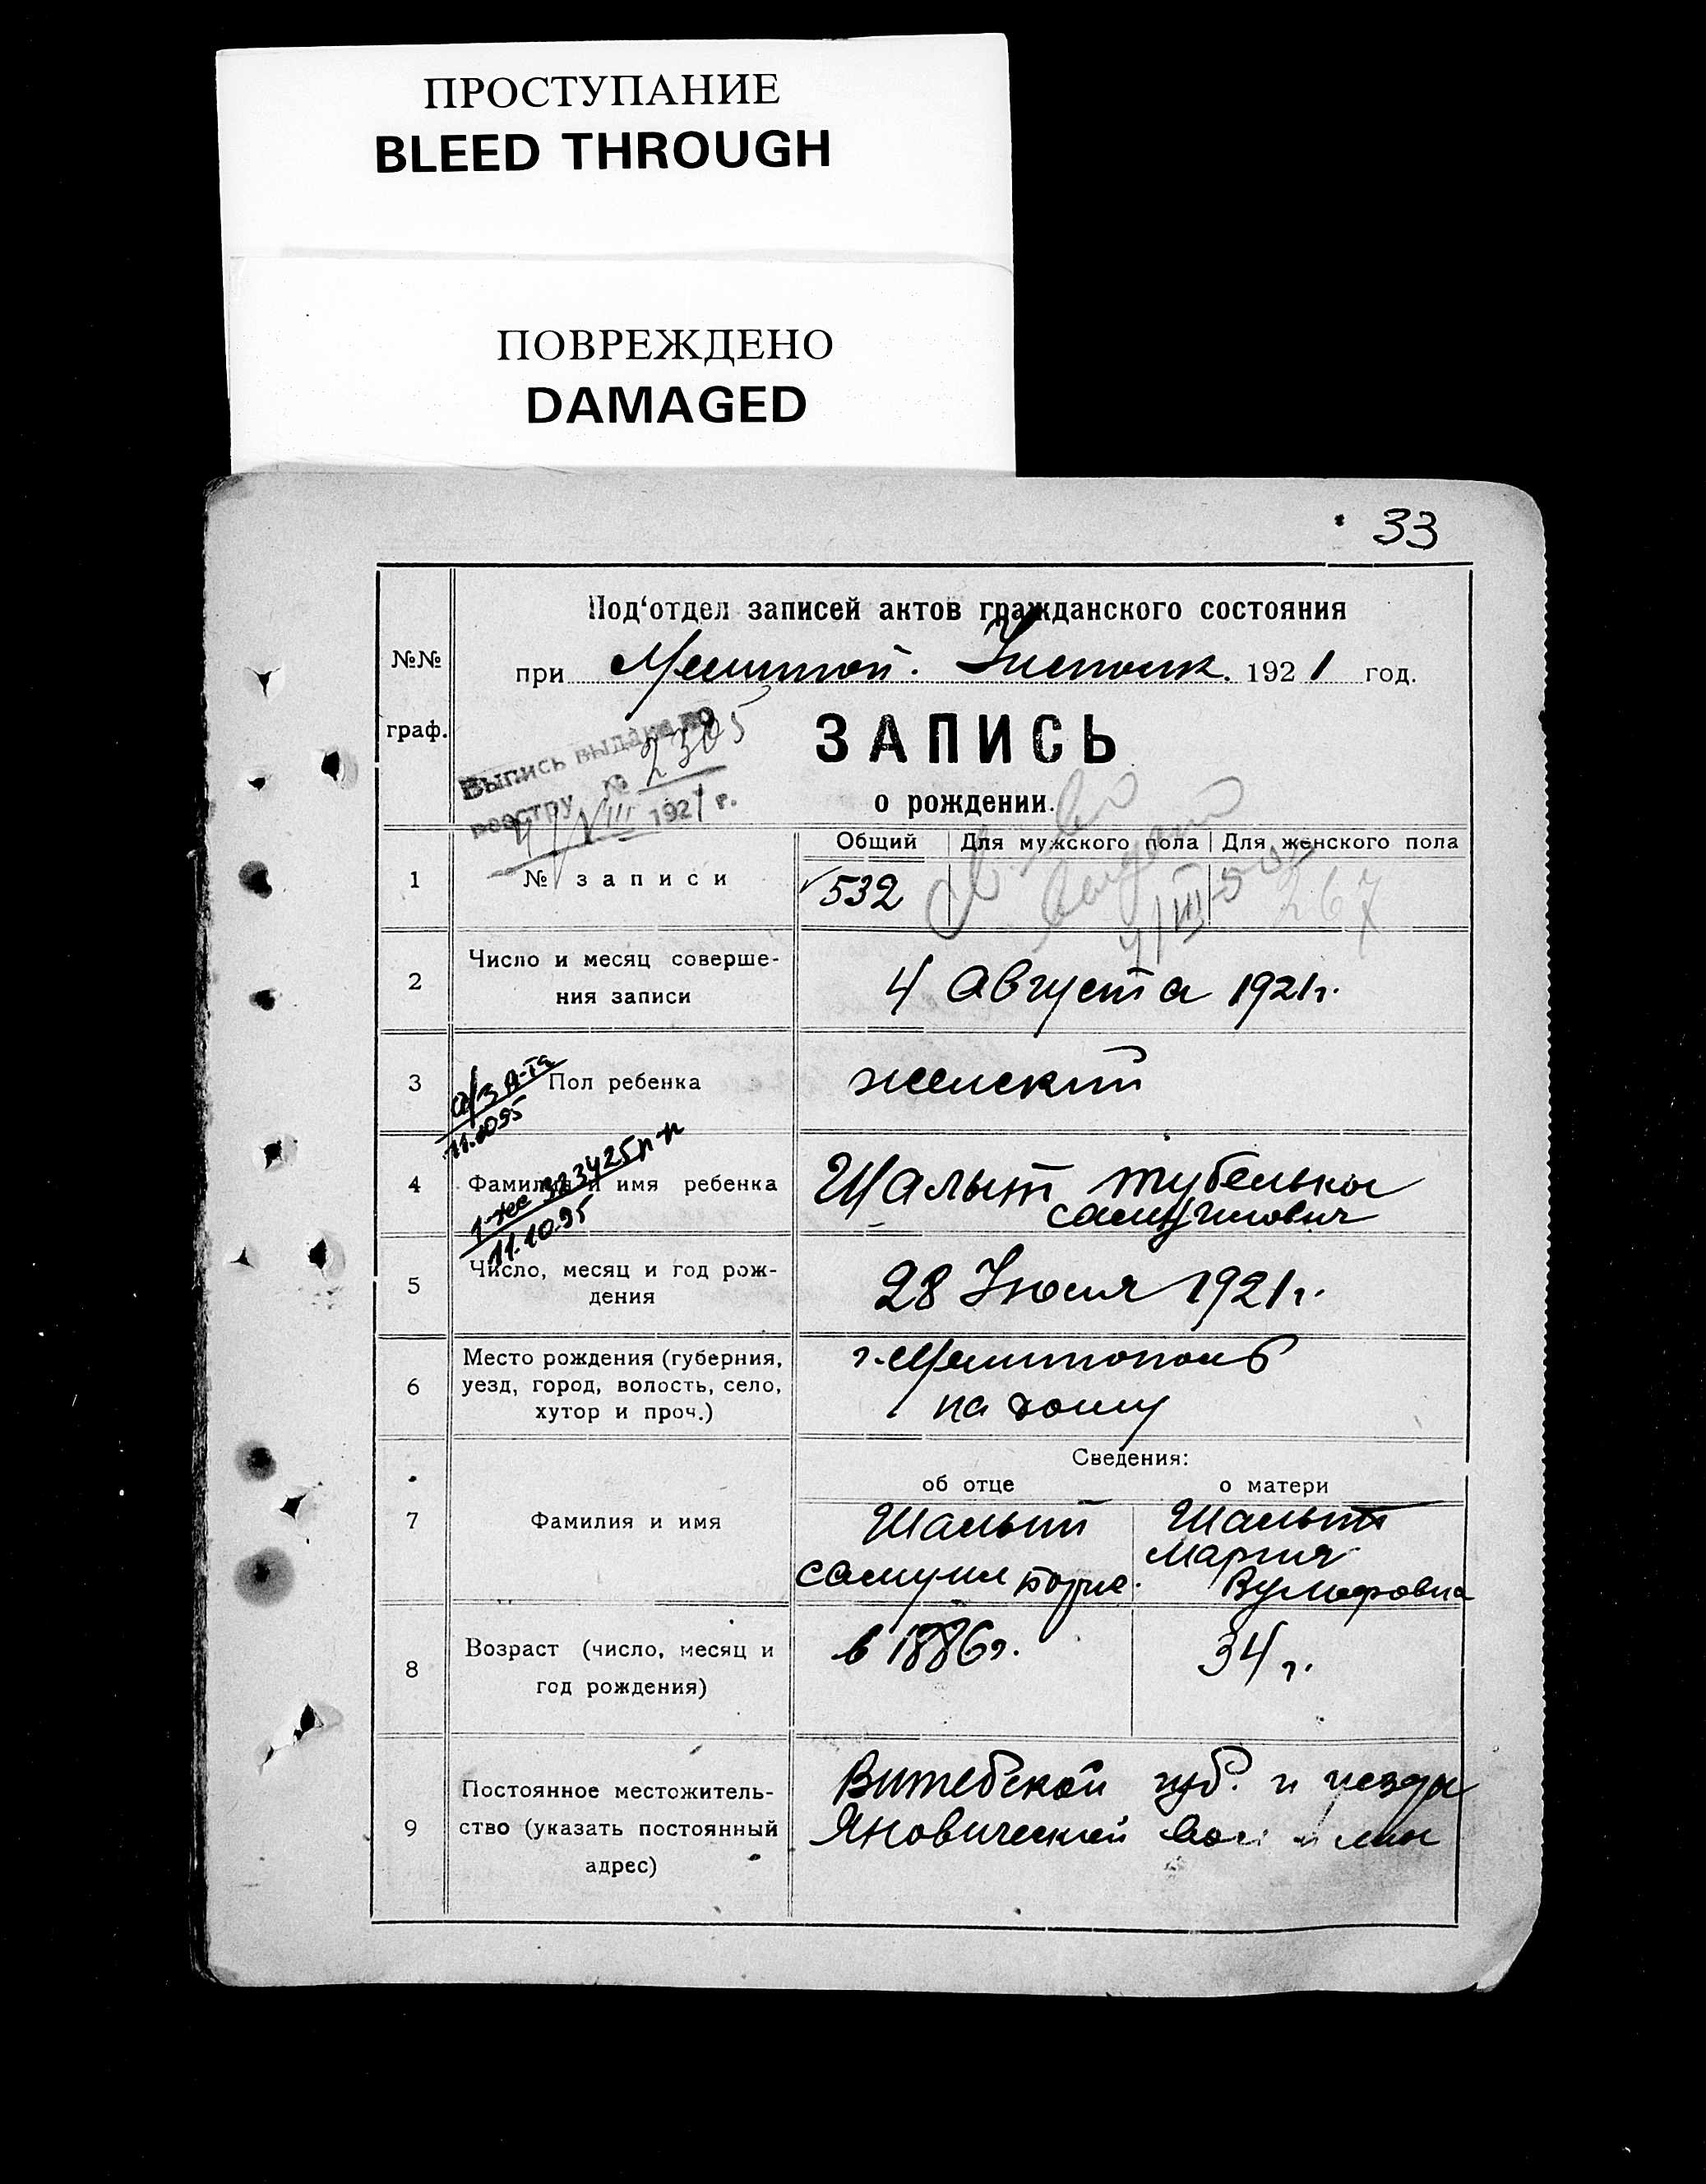 ПРОСТУПАНИЕ
BLEED THROUGH
ПОВРЕЖДЕНО
DAMAGED
33
№№
граф.
Под‘отдел записей актов гражданского состояния
при Мелитоп. Исполк. 1921 год.
Выпись выдана по
реестру № 2305
4/VIII 1921 г.
ЗАПИСЬ
о рождении.
Общий Для мужского пола Для женского пола
1 № записи 532 267
2 Число и месяц соверше-
ния записи
4 Августа 1921г.
3 Пол ребенка женский
11.10.95
4 Фамилия и имя ребенка Шалыт
Самуилович
323425
11.10.95
5 Число, месяц и год рож-
дения
28 Июля 1921г.
6 Место рождения (губерния,
уезд, город, волость, село,
хутор и проч.)
г. Мелитополь
на дому
Сведения:
об отце о матери
7 Фамилия и имя
Шалыт
Самуил
Шалыт
Мария
Вульфовна
8 Возраст (число, месяц и
год рождения)
в 1886г. 34 г.
9 Постоянное местожитель-
ство (указать постоянный
адрес)
Витебской губ. и уезда
Яновической